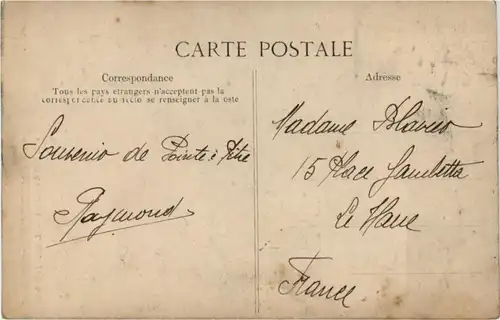 CARTE POSTALE
Correspondance
Tous les pays étrangers n'acceptent pas la
correspondance au recto se renseigner à la oste
Souvenir de Pointe à Pitre
Raymond
Adresse
Madame
15 Place Gambetta
Le Havre
France